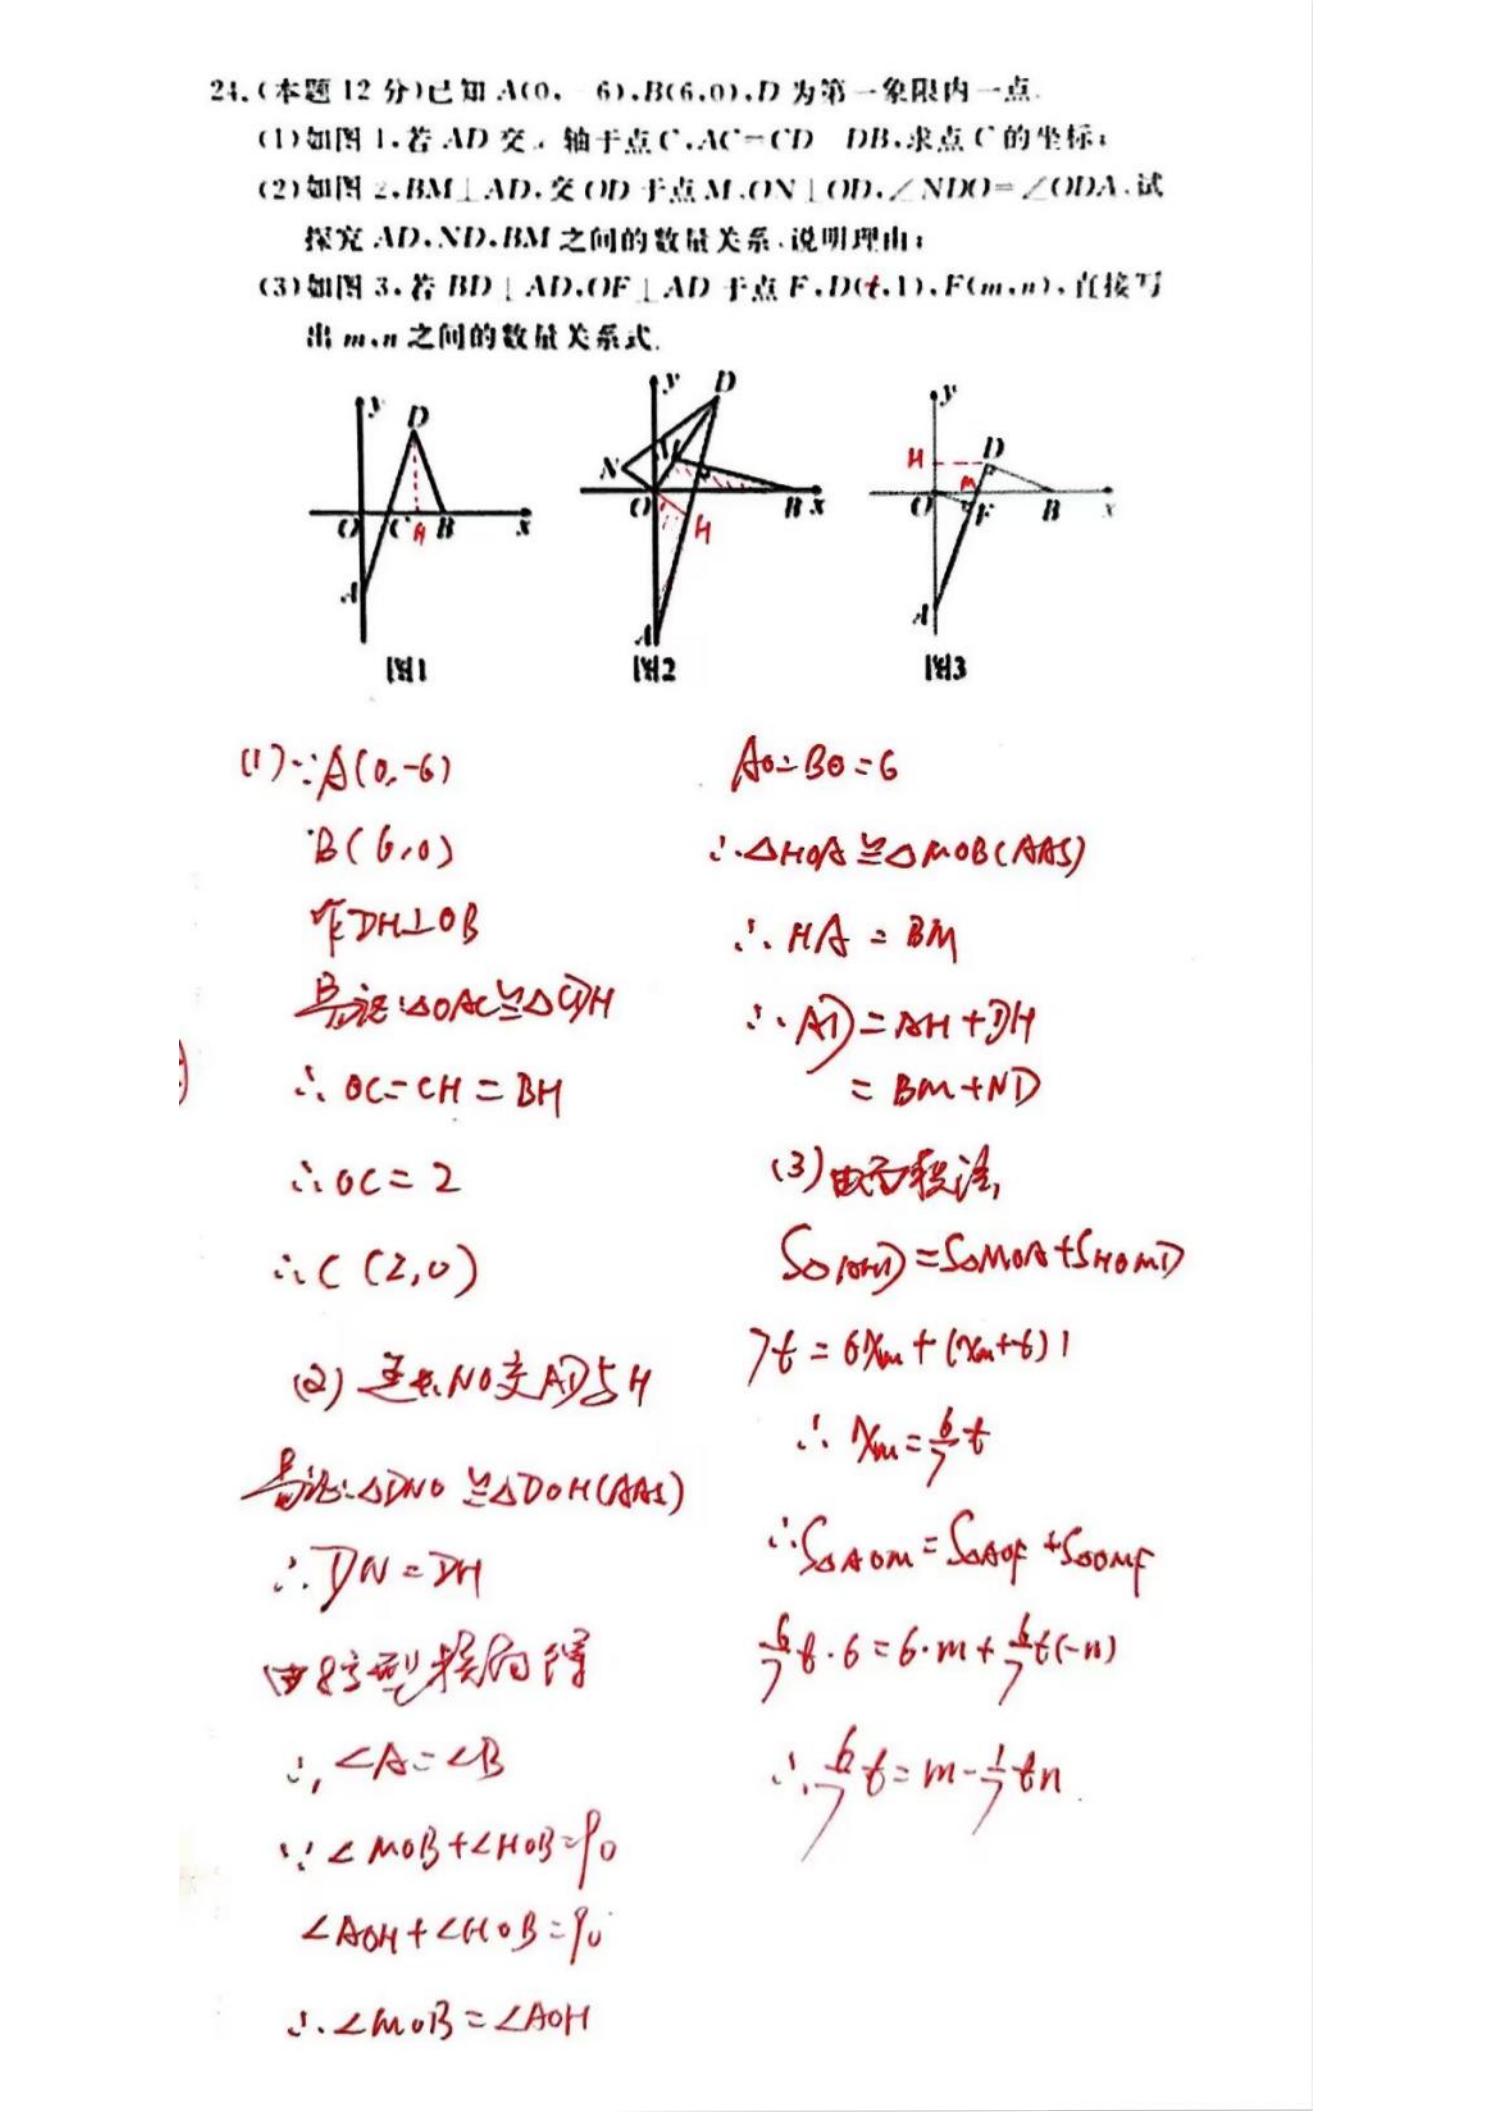 24.(本题 12 分)已知 A(0, 6),B(6,0),D 为第一象限内一点.
(1)如图 1,若 AD 交 轴于点 C,AC=CD DB,求点 C 的坐标;
(2)如图 2,BM⊥AD,交 OD 于点 M,ON⊥OD,∠NDO=∠ODA,试
探究 AD,ND,BM 之间的数量关系,说明理由;
(3)如图 3,若 BD⊥AD,OF⊥AD 于点 F,D(t,1),F(m,n),直接写
出 m,n 之间的数量关系式.
y D O C H B x A
图1
y D N M O B x H A
图2
y H D M O F B x A
图3
(1)∵A(0,-6)
B(6,0)
作DH⊥OB
易证:△OAC≌△CDH
∴OC=CH=BH
∴OC=2
∴C(2,0)
(2) 延长NO交AD与H
易证:△DNO≌△DOH(AAS)
∴DN=DH
由8字型模型得
∴∠A=∠B
∵∠MOB+∠HOB=90
∠AOH+∠HOB=90
∴∠MOB=∠AOH
AO=BO=6
∴△HOA≌△MOB(AAS)
∴HA=BM
∴AD=AH+DH
=BM+ND
(3)由面积法,
S△AHD=S△MOA+SHOMD
7t=6Xm+(Xm+t)1
∴Xm=6/7t
∴S△AOM=S△AOF+S△OMF
6/7t·6=6·m+6/7t(-n)
∴6/7t=m-1/7tn